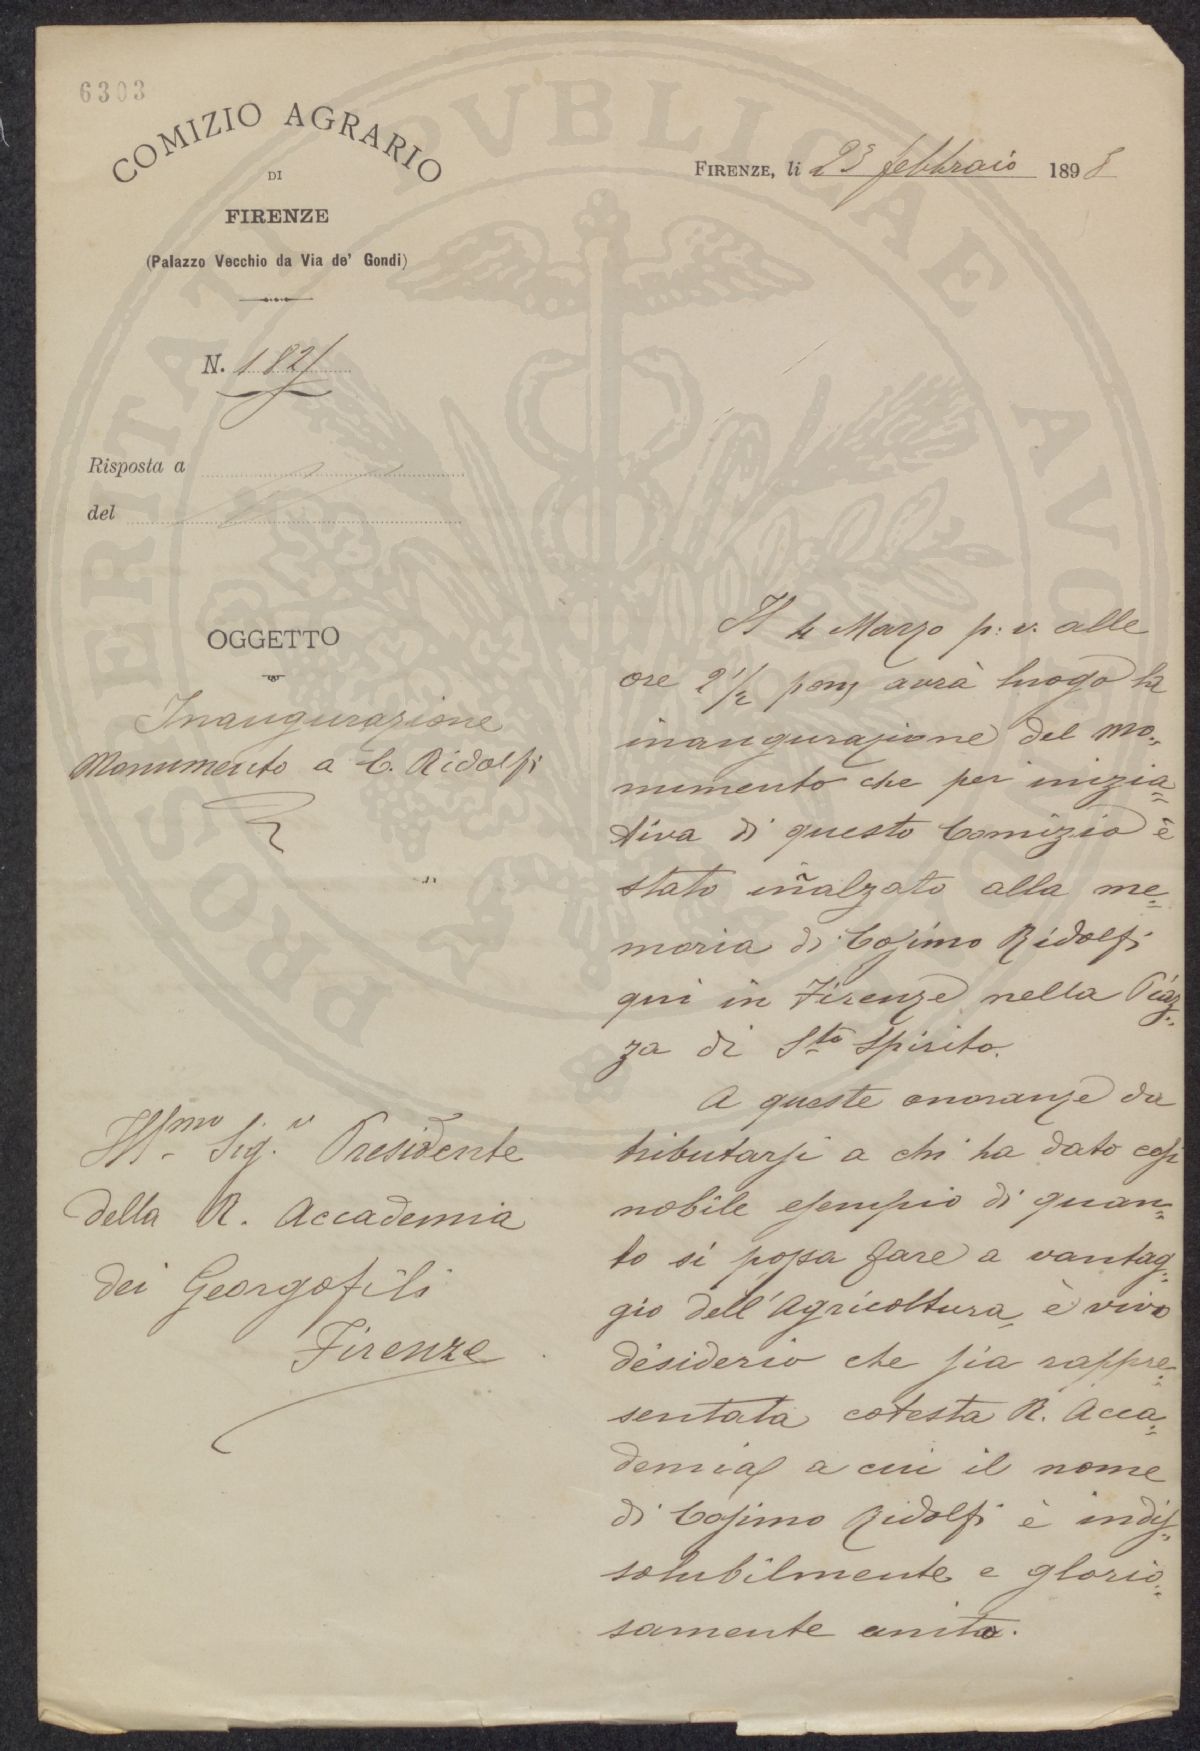 6303
COMIZIO AGRARIO
DI
FIRENZE
(Palazzo Vecchio da Via de' Gondi)
FIRENZE, li 23 febbraio 1898
N. 182
Risposta a
del
OGGETTO
Inaugurazione
Monumento a C. Ridolfi
Ill.mo Sig.r Presidente
della R. Accademia
dei Georgofili
Firenze
Il 4 Marzo p: v. alle
ore 2 1/2 pom avrà luogo la
inaugurazione del mo-
numento che per inizia=
tiva di questo Comizio è
stato iñalzato alla me=
moria di Cosimo Ridolfi
qui in Firenze nella Piaz=
za di S.to Spirito.
A queste onoranze da
tributarsi a chi ha dato così
nobile esempio di quan=
to si possa fare a vantag=
gio dell'Agricoltura, è vivo
desiderio che sia rappre=
sentata cotesta R. Acca=
demia a cui il nome
di Cosimo Ridolfi è indis=
solubilmente e glorio=
samente unito.
PROSPERITATI PVBLICAE AVGENDAE